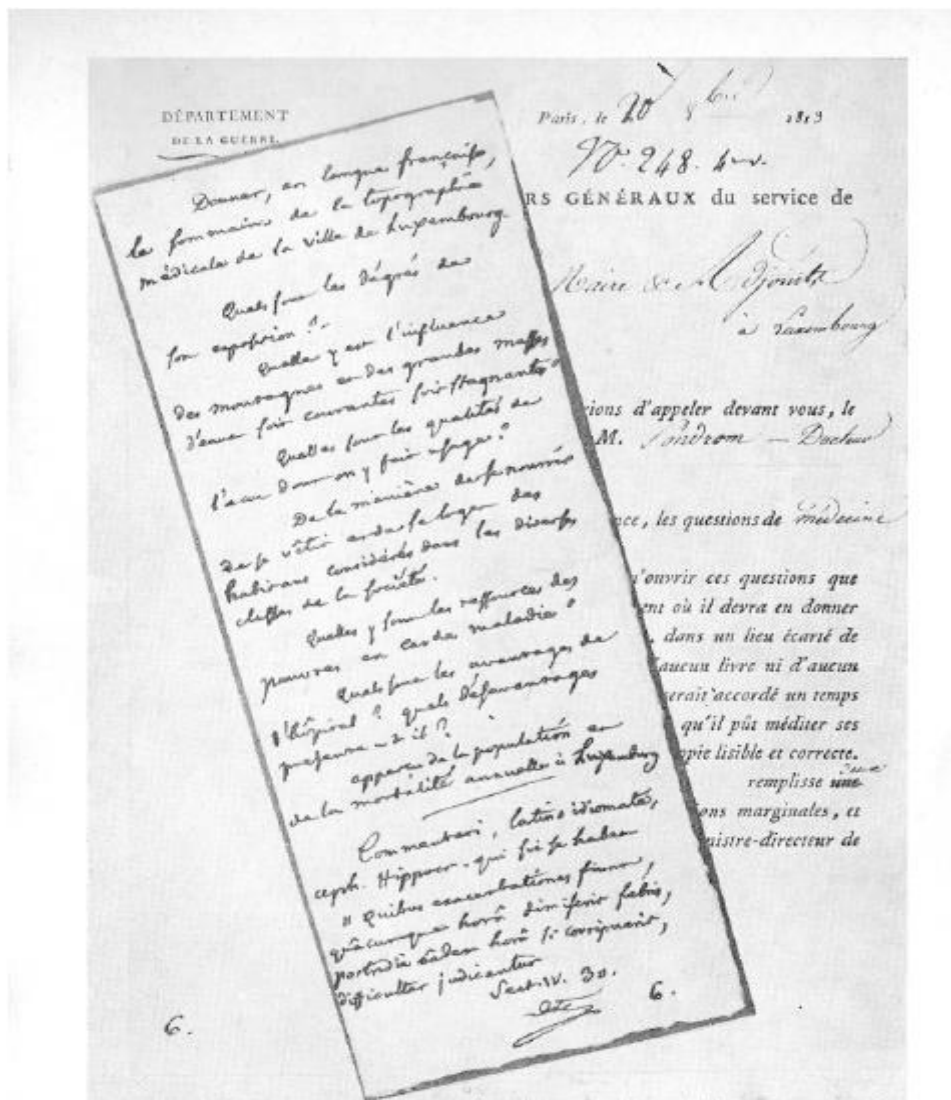 DÉPARTEMENT
DE LA GUERRE.
Paris, le 20 8bre 1813
N.º 248.
RS GÉNÉRAUX du service de
Maire & Adjoints
à Luxembourg
rions d'appeler devant vous, le
M. Docteur
nce, les questions de médecine
n'ouvrir ces questions que
ent où il devra en donner
, dans un lieu écarté de
d'aucun livre ni d'aucun
serait accordé un temps
qu'il pût méditer ses
opie lisible et correcte.
remplisse une
ons marginales, et
nistre-directeur de
6.
Donner, en langue françoise,
le sommaire de la topographie
médicale de la ville de Luxembourg.
Quels sont les dégrés de
son exposition ?
Quelle y est l'influence
des montagnes et des grandes masses
d'eaux soit courantes soit stagnantes ?
Quelles sont les qualités de
l'eau dont on y fait usage ?
De la manière de se nourrir
de se vêtir et de se loger des
habitans considérés dans les diverses
classes de la société.
Quelles y sont les ressources des
pauvres en cas de maladie ?
Quels sont les avantages de
l'hôpital ? quels désavantages
présente-t-il ?
apperçu de la population et
de la mortalité annuelle à Luxembourg
Commentari, latino idiomate,
aph. Hippocr. qui sic se habet
" Quibus exacerbationes fiunt,
quâcunque horâ dimiserit febris,
postridie eâdem horâ si corripuerit,
difficulter judicantur
Sect. IV. 30.
6.